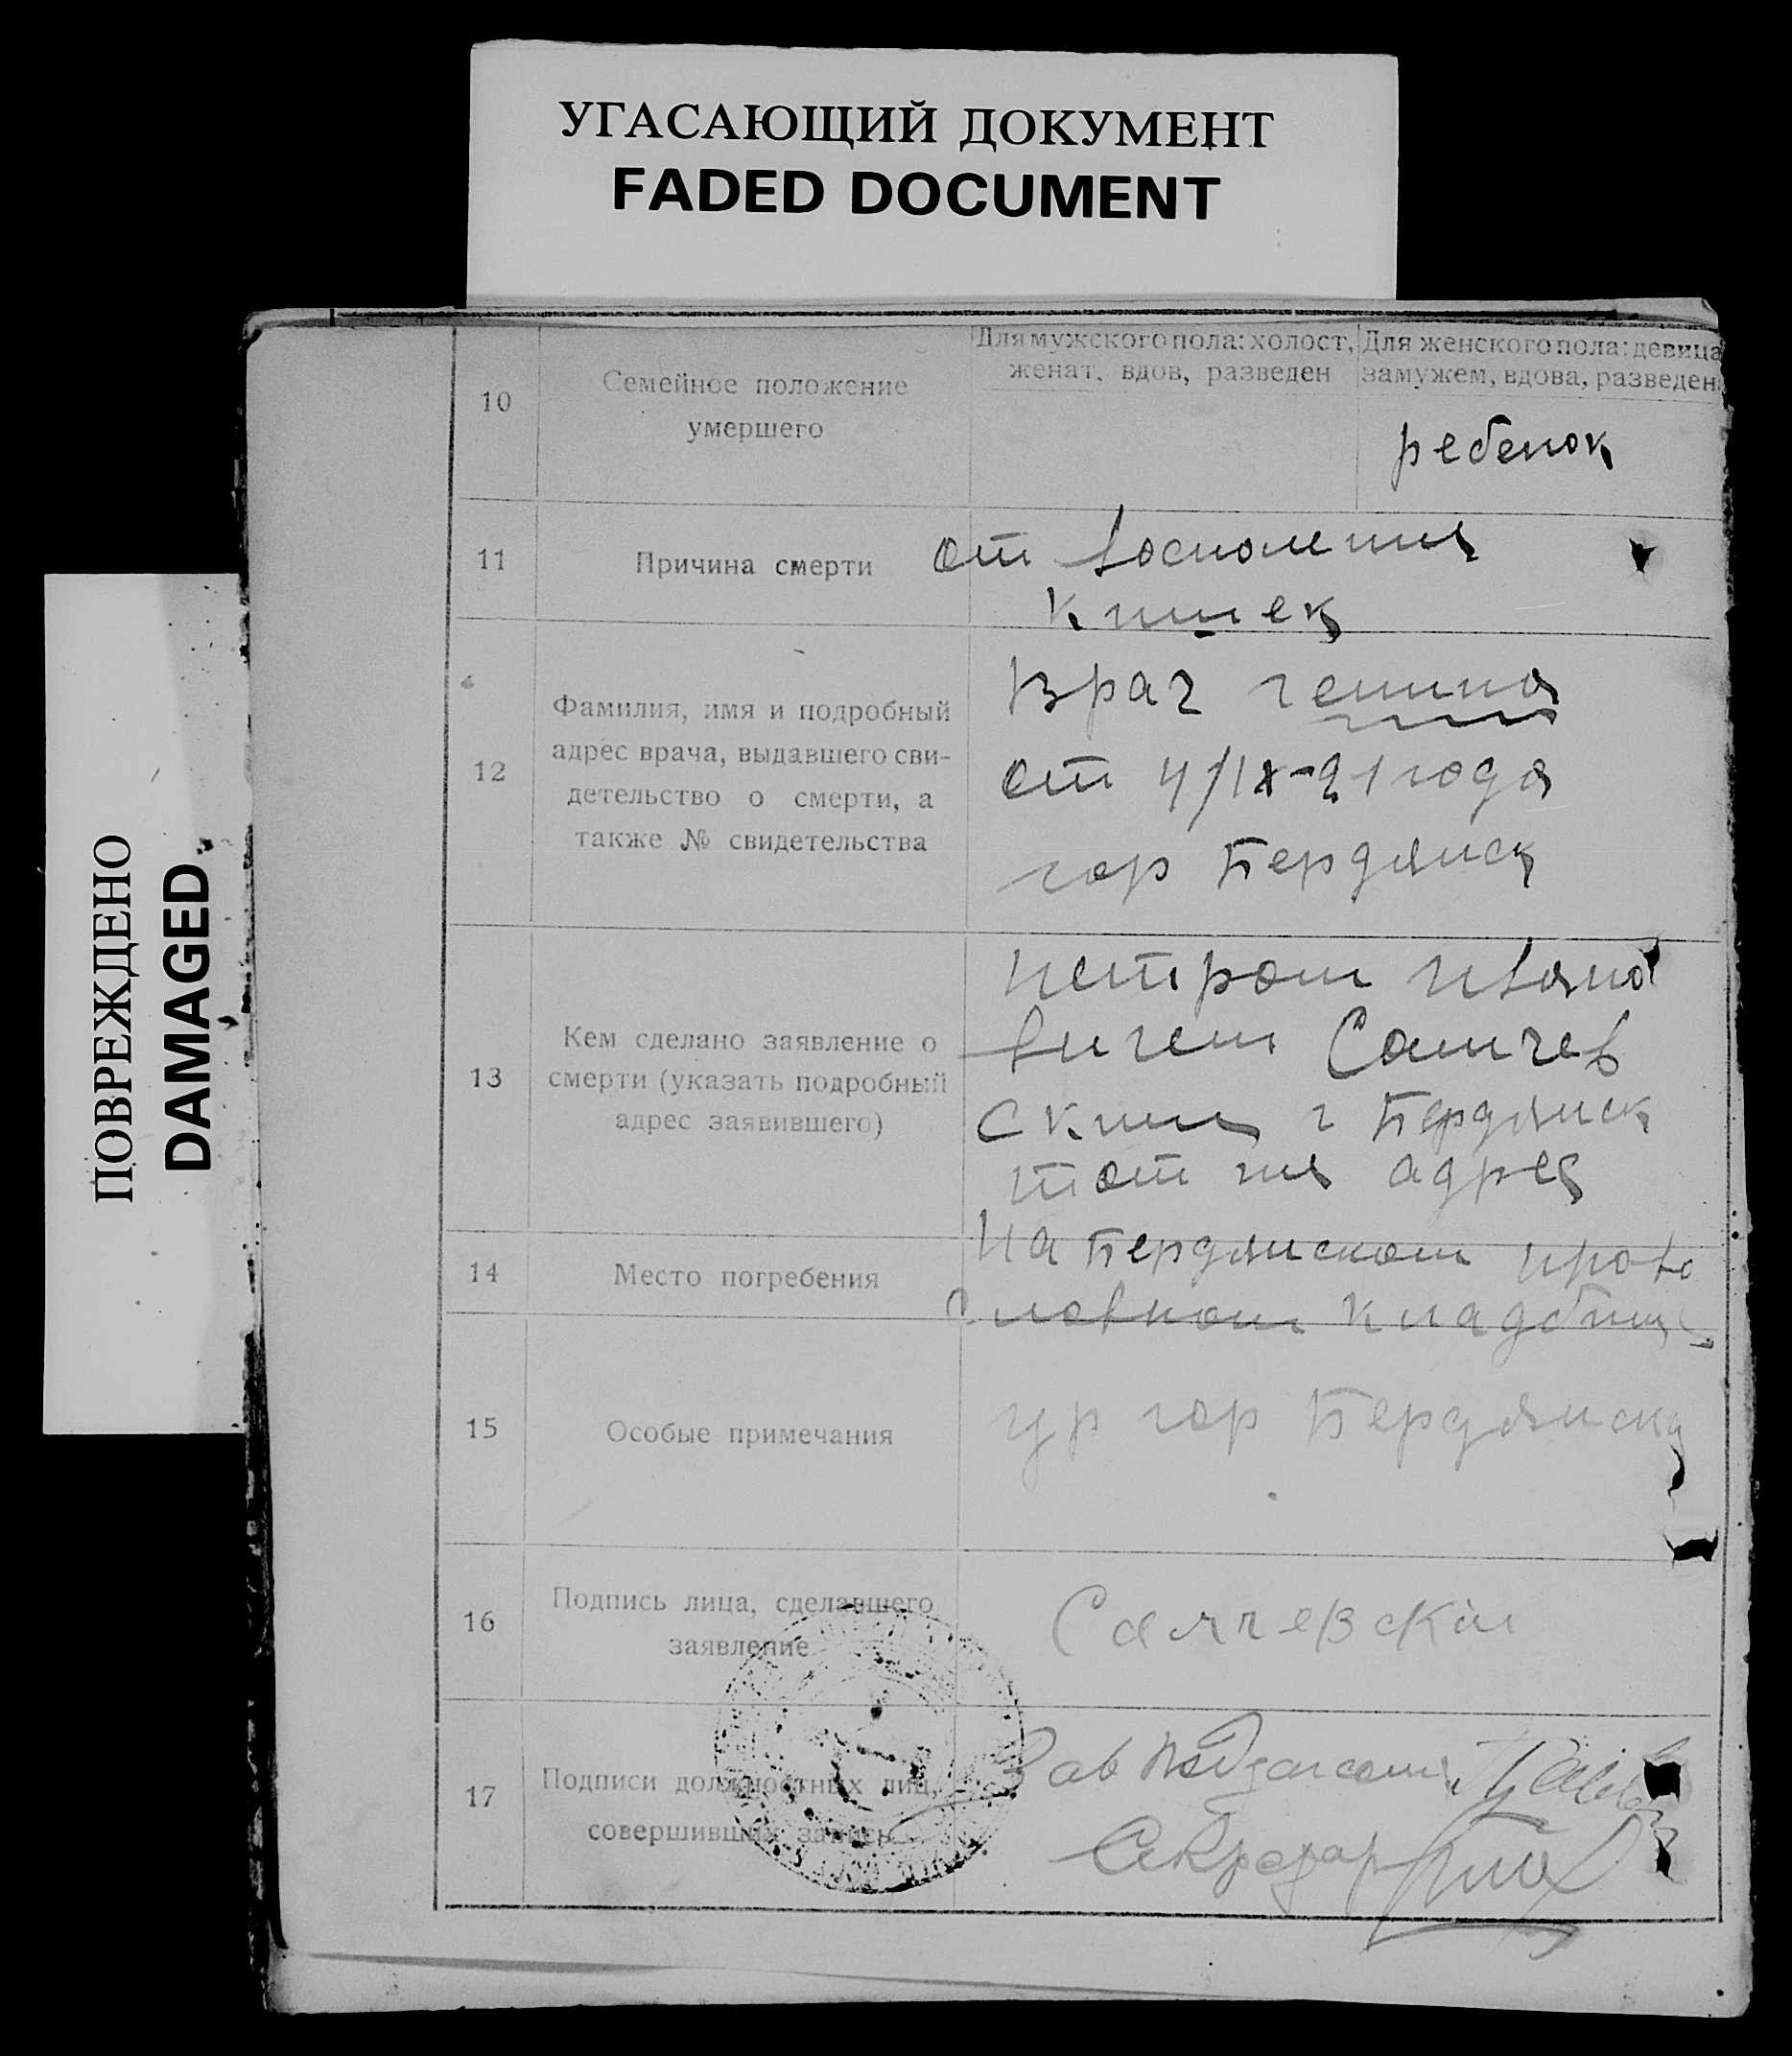 УГАСАЮЩИЙ ДОКУМЕНТ
FADED DOCUMENT
ПОВРЕЖДЕНО
DAMAGED
10
Семейное положение
умершего
Для мужского пола: холост,
женат, вдов, разведен
Для женского пола: девица
замужем, вдова, разведен
ребенок
11
Причина смерти
от восполения
кишек
12
Фамилия, имя и подробный
адрес врача, выдавшего сви-
детельство о смерти, а
также № свидетельства
Врач
от 4/IX-21 года
гор Бердянск
13
Кем сделано заявление о
смерти (указать подробный
адрес заявившего)
петром ивано
вичем Самчев
ским г Бердянск
тот же адрес
14
Место погребения
На Бердянском право
славном кладбище
15
Особые примечания
гор Бердянска
16
Подпись лица, сделавшего
заявление
17
Подписи должностных лиц,
совершивших запись
Зав
Секретарь